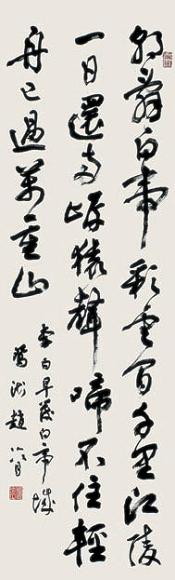 朝辞白帝彩雲間千里江陵
一日還兩岸猿聲啼不住輕
舟已過萬重山
李白早發白帝城
趙冷月